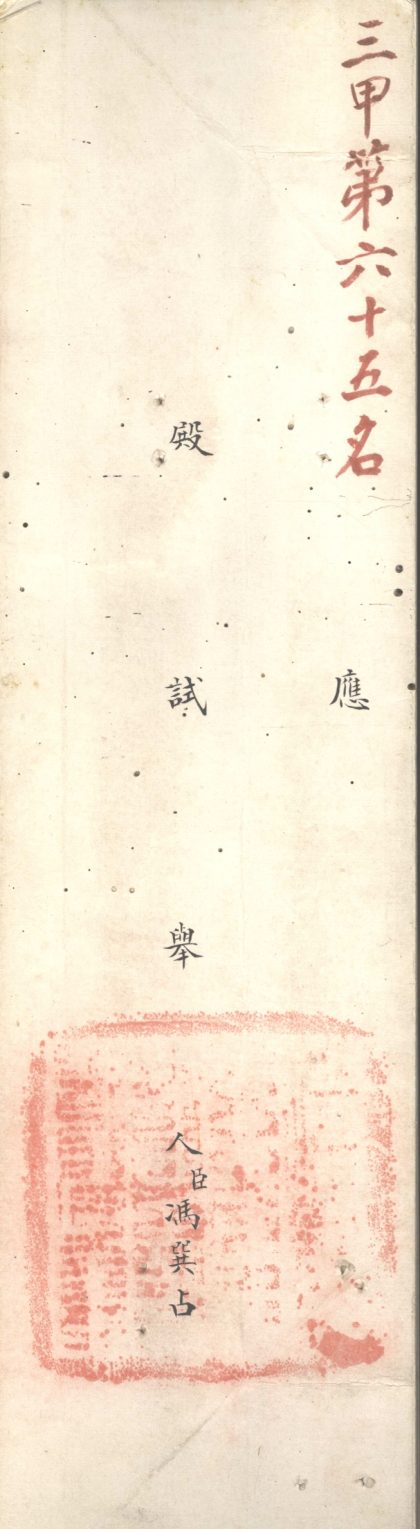 三甲第六十五名
應
殿試舉人臣馮巽占